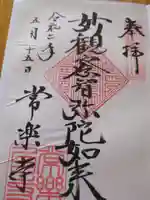 奉拝
妙観察智弥陀如来
令和二年
五月二十五日
常楽寺